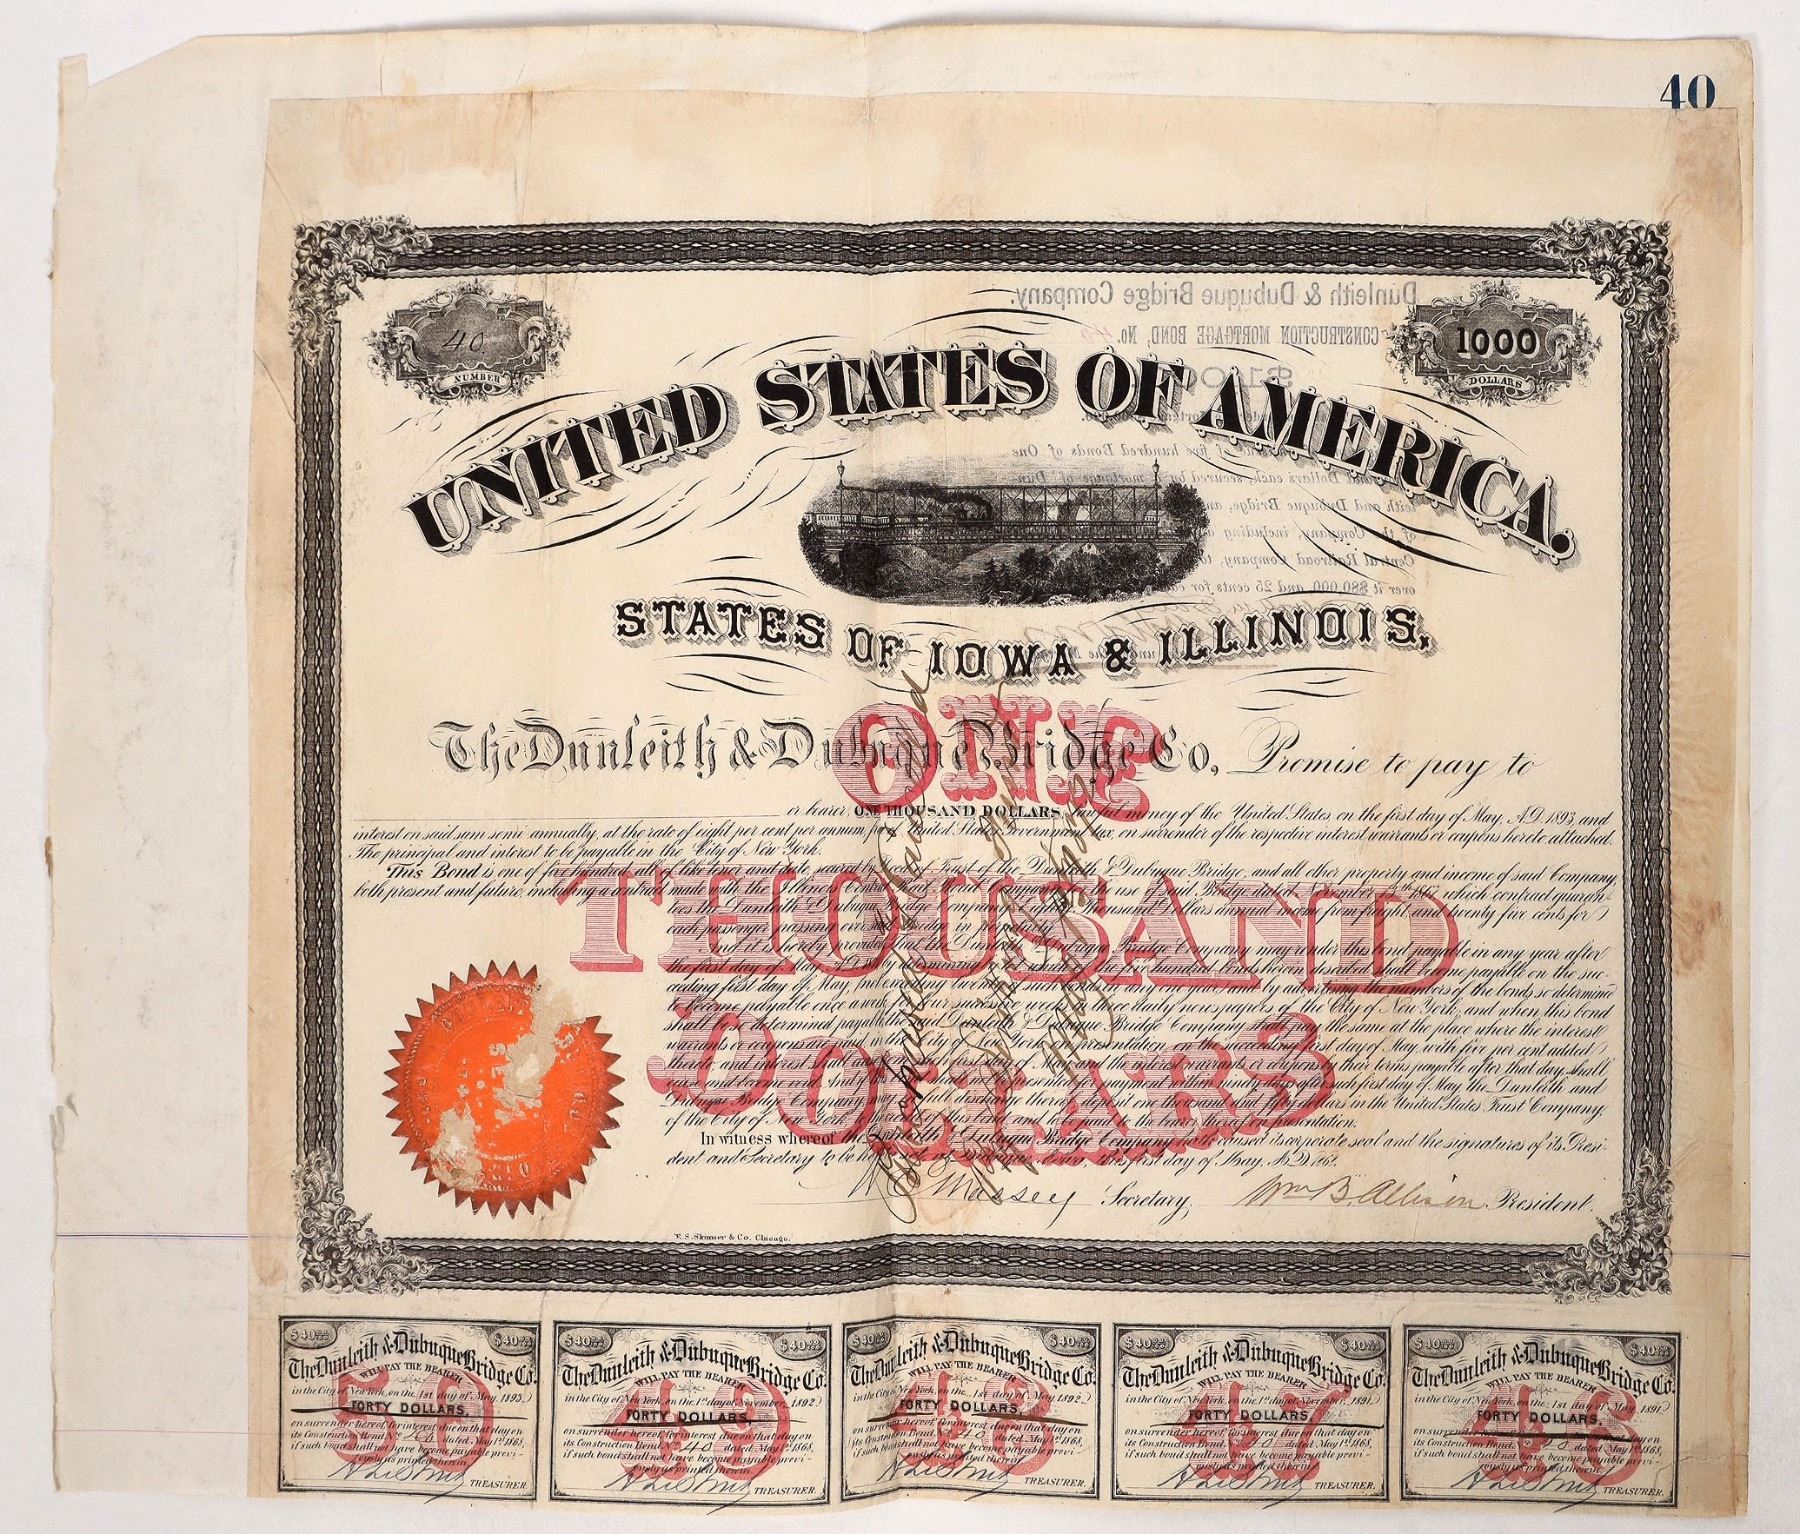 40
40
NUMBER
1000
DOLLARS
Dunleith & Dubuque Bridge Company.
CONSTRUCTION MORTGAGE BOND, No. 40
five hundred Bonds of One
Dollars each, secured by mortgage of Dun
leith and Dubuque Bridge,
of the Company, including
Central Railroad Company, to
over it $80,000, and 25 cents for
UNITED STATES OF AMERICA.
STATES OF IOWA & ILLINOIS.
ONE
The Dunleith & Dubuque Bridge Co, Promise to pay to
or bearer, ONE THOUSAND DOLLARS, lawful money of the United States on the first day of May, A.D. 1893, and
interest on said sum semi-annually, at the rate of eight per cent per annum, United States Government tax, on surrender of the respective interest warrants or coupons hereto attached.
The principal and interest to be payable in the City of New York.
This Bond is one of five hundred all of like tenor and date, secured by Deed of Trust of the Dunleith & Dubuque Bridge, and all other property and income of said Company,
both present and future, including a contract made with the Illinois Central Rail Road Company for the use of said Bridge dated November 1867, which contract guaran-
tees the Dunleith & Dubuque Bridge Company Eighty Thousand Dollars annual income from freight and twenty five cents for
each passenger passing over said Bridge in perpetuity.
THOUSAND
And it is hereby provided that the Dunleith & Dubuque Bridge Company may render this bond payable in any year after
the first day of May, A.D. by determining which of the five hundred bonds herein described shall become payable on the suc-
ceeding first day of May, not exceeding twenty of such bonds in any one year, and by advertising the numbers of the bonds so determined
to become payable once a week for four successive weeks in three daily newspapers of the City of New York, and when this bond
shall be so determined payable the said Dunleith & Dubuque Bridge Company shall pay the same at the place where the interest
warrants or coupons are paid, in the City of New York, on presentation, on the succeeding first day of May, with five per cent added
thereto and interest shall cease on such first day of May and the interest warrants or coupons by their terms payable after that day shall
cease and become void. And if this bond shall not be presented for payment within ninety days after such first day of May the Dunleith and
Dubuque Bridge Company may in full discharge thereof deposit one thousand and fifty dollars in the United States Trust Company,
of the City of New York for the use of this bond and to be paid to the bearer thereof on presentation.
DOLLARS
In witness whereof the Dunleith & Dubuque Bridge Company hath caused its corporate seal and the signatures of its Presi-
dent and Secretary to be hereunto at Dubuque Iowa, this first day of May, A.D. 1868.
Massey Secretary, Wm B. Allison President.
E. S. Skinner & Co. Chicago.
$40 $40
The Dunleith & Dubuque Bridge Co.
WILL PAY THE BEARER
in the City of New York, on the 1st day of May 1893,
FORTY DOLLARS,
on surrender hereof, for interest due on that day on
its Construction Bond No 40 dated May 1st 1868,
if such bond shall not have become payable previ-
ously as printed therein.
TREASURER.
50
$40 $40
The Dunleith & Dubuque Bridge Co.
WILL PAY THE BEARER
in the City of New York, on the 1st day of November, 1892
FORTY DOLLARS,
on surrender hereof, for interest due on that day on
its Construction Bond No 40 dated May 1st 1868,
if such bond shall not have become payable previ-
ously as printed therein.
TREASURER.
49
$40 $40
The Dunleith & Dubuque Bridge Co.
WILL PAY THE BEARER
in the City of New York, on the 1st day of May 1892,
FORTY DOLLARS,
on surrender hereof, for interest due on that day on
its Construction Bond No 40 dated May 1st 1868,
if such bond shall not have become payable previ-
ously as printed therein.
TREASURER.
48
$40 $40
The Dunleith & Dubuque Bridge Co.
WILL PAY THE BEARER
in the City of New York, on the 1st day of November, 1891
FORTY DOLLARS,
on surrender hereof, for interest due on that day on
its Construction Bond No 40 dated May 1st 1868,
if such bond shall not have become payable previ-
ously as printed therein.
TREASURER.
47
$40 $40
The Dunleith & Dubuque Bridge Co.
WILL PAY THE BEARER
in the City of New York, on the 1st day of May 1891
FORTY DOLLARS,
on surrender hereof, for interest due on that day on
its Construction Bond No 40 dated May 1st 1868,
if such bond shall not have become payable previ-
ously as printed therein.
TREASURER.
46